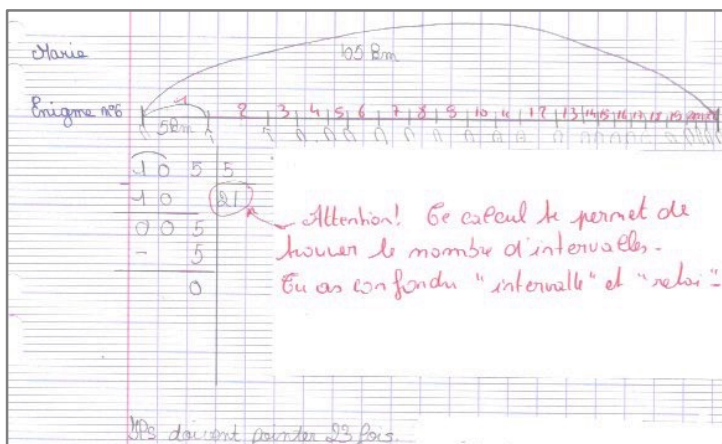 Marie
105 km
Enigme n°6
1 2 3 4 5 6 7 8 9 10 11 12 13 14 15 16 17 18 19
5 km
1 0 5 5
1 0 21
0 0 5
- 5
0
Attention! Ce calcul te permet de
trouver le nombre d'intervalles.
Tu as confondu "intervalle" et "relai".
Ils doivent pointer 23 fois.